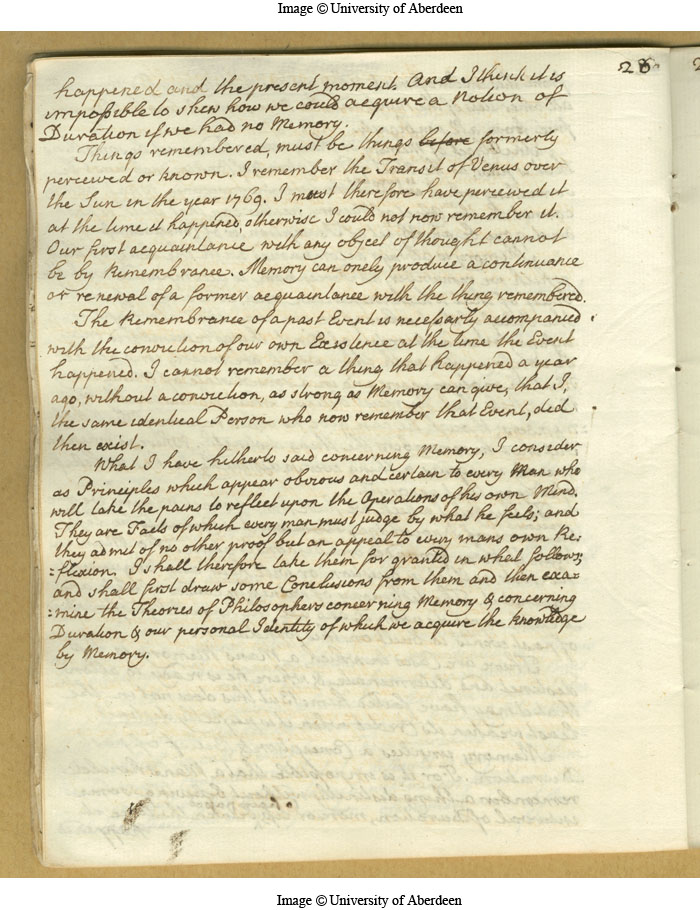 Image © University of Aberdeen
28
happened and the present moment. And I think it is
impossible to shew how we could acquire a Notion of
Duration if we had no Memory.
Things remembered, must be things before formerly
perceived or known. I remember the Transit of Venus over
the Sun in the year 1769. I must therefore have perceived it
at the time it happened, otherwise I could not now remember it.
Our first acquaintance with any object of thought cannot
be by Remembrance. Memory can onely produce a continuance
or renewal of a former acquaintance with the thing remembered.
The Remembrance of a past Event is necessarly accompanied
with the conviction of our own Existence at the time the Event
happened. I cannot remember a thing that happened a year
ago, without a conviction, as strong as Memory can give, that I,
the same identical Person who now remember that Event, did
then exist.
What I have hitherto said concerning Memory, I consider
as Principles which appear obvious and certain to every Man who
will take the pains to reflect upon the Operations of his own Mind.
They are Facts of which every man must judge by what he feels; and
they admit of no other proof but an appeal to every mans own Re=
=flexion. I shall therefore take them for granted in what follows;
and shall first draw some Conclusions from them and then exa=
=mine the Theories of Philosophers concerning Memory & concerning
Duration & our personal Identity of which we acquire the knowledge
by Memory.
Image © University of Aberdeen